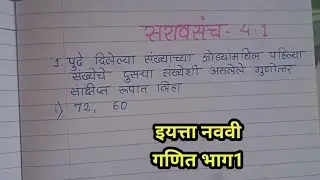 सरावसंच - 4.1
1 पुढे दिलेल्या संख्यांच्या जोड्यांमधिल पहिल्या
संख्येचे दुसऱ्या संख्येशी असलेले गुणोत्तर
संक्षिप्त रूपात लिहा
1) 72, 60
इयत्ता नववी
गणित भाग1